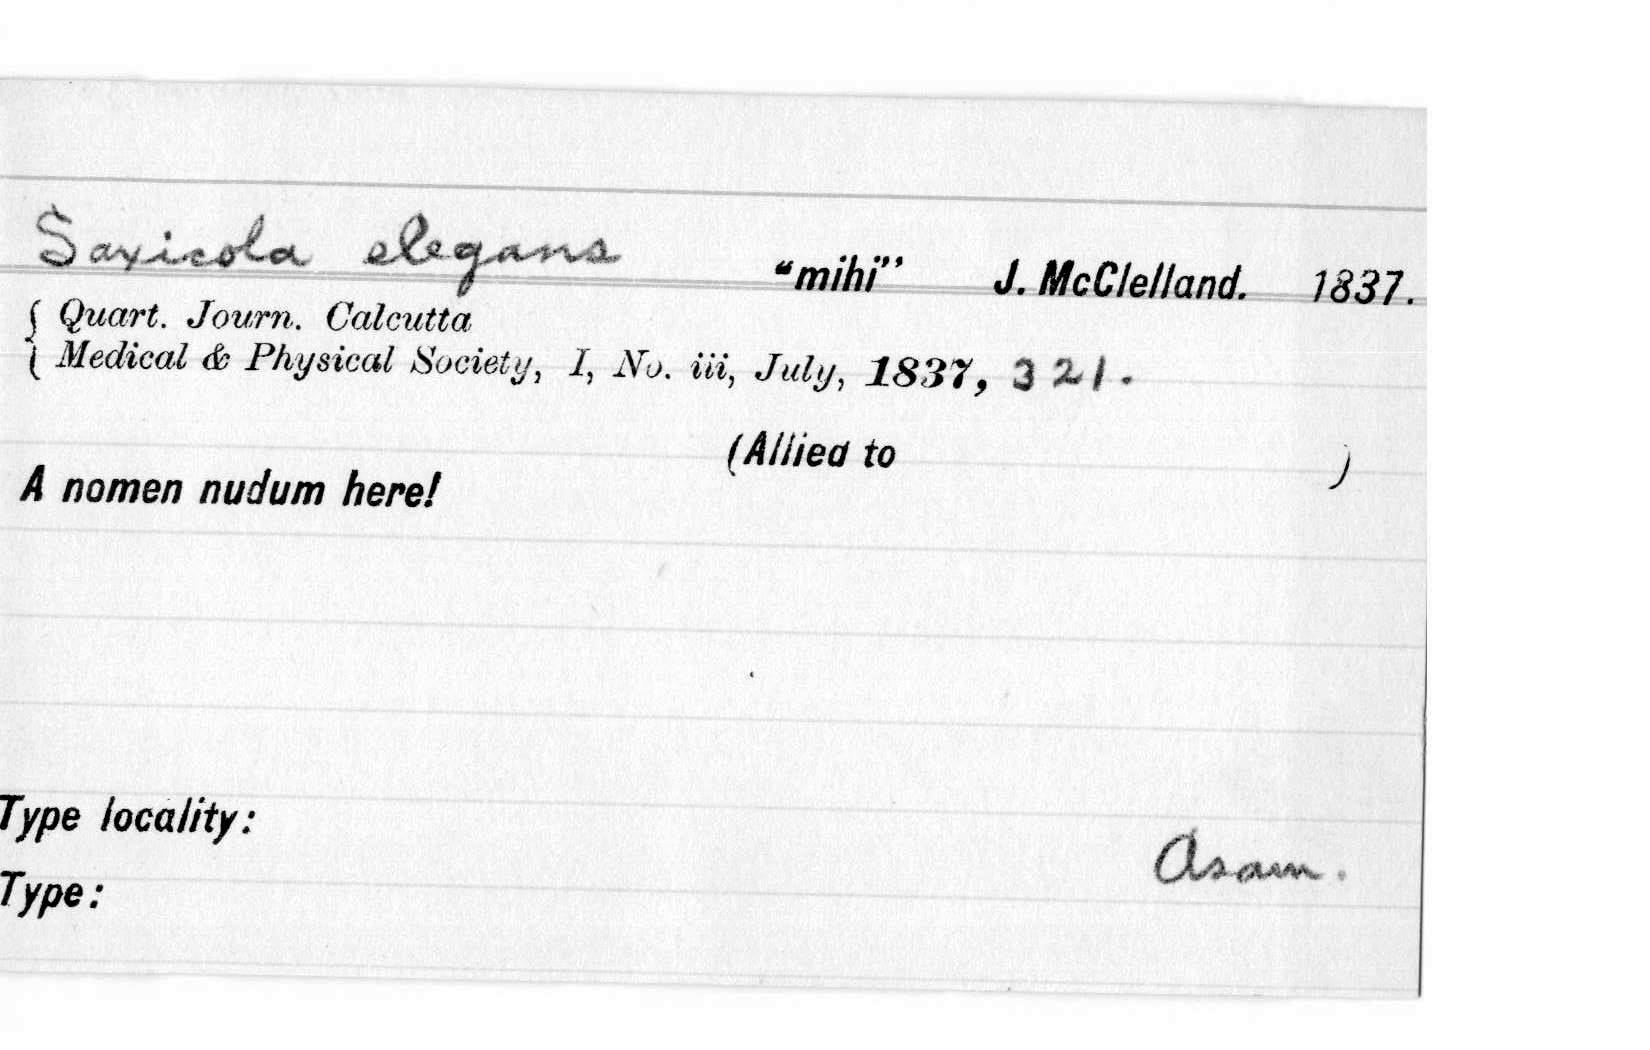 Saxicola elegans "mihi" J. McClelland. 1837.
{ Quart. Journ. Calcutta
Medical & Physical Society, I, No. iii, July, 1837, 321.
(Allied to )
A nomen nudum here!
Type locality:
Asam.
Type: